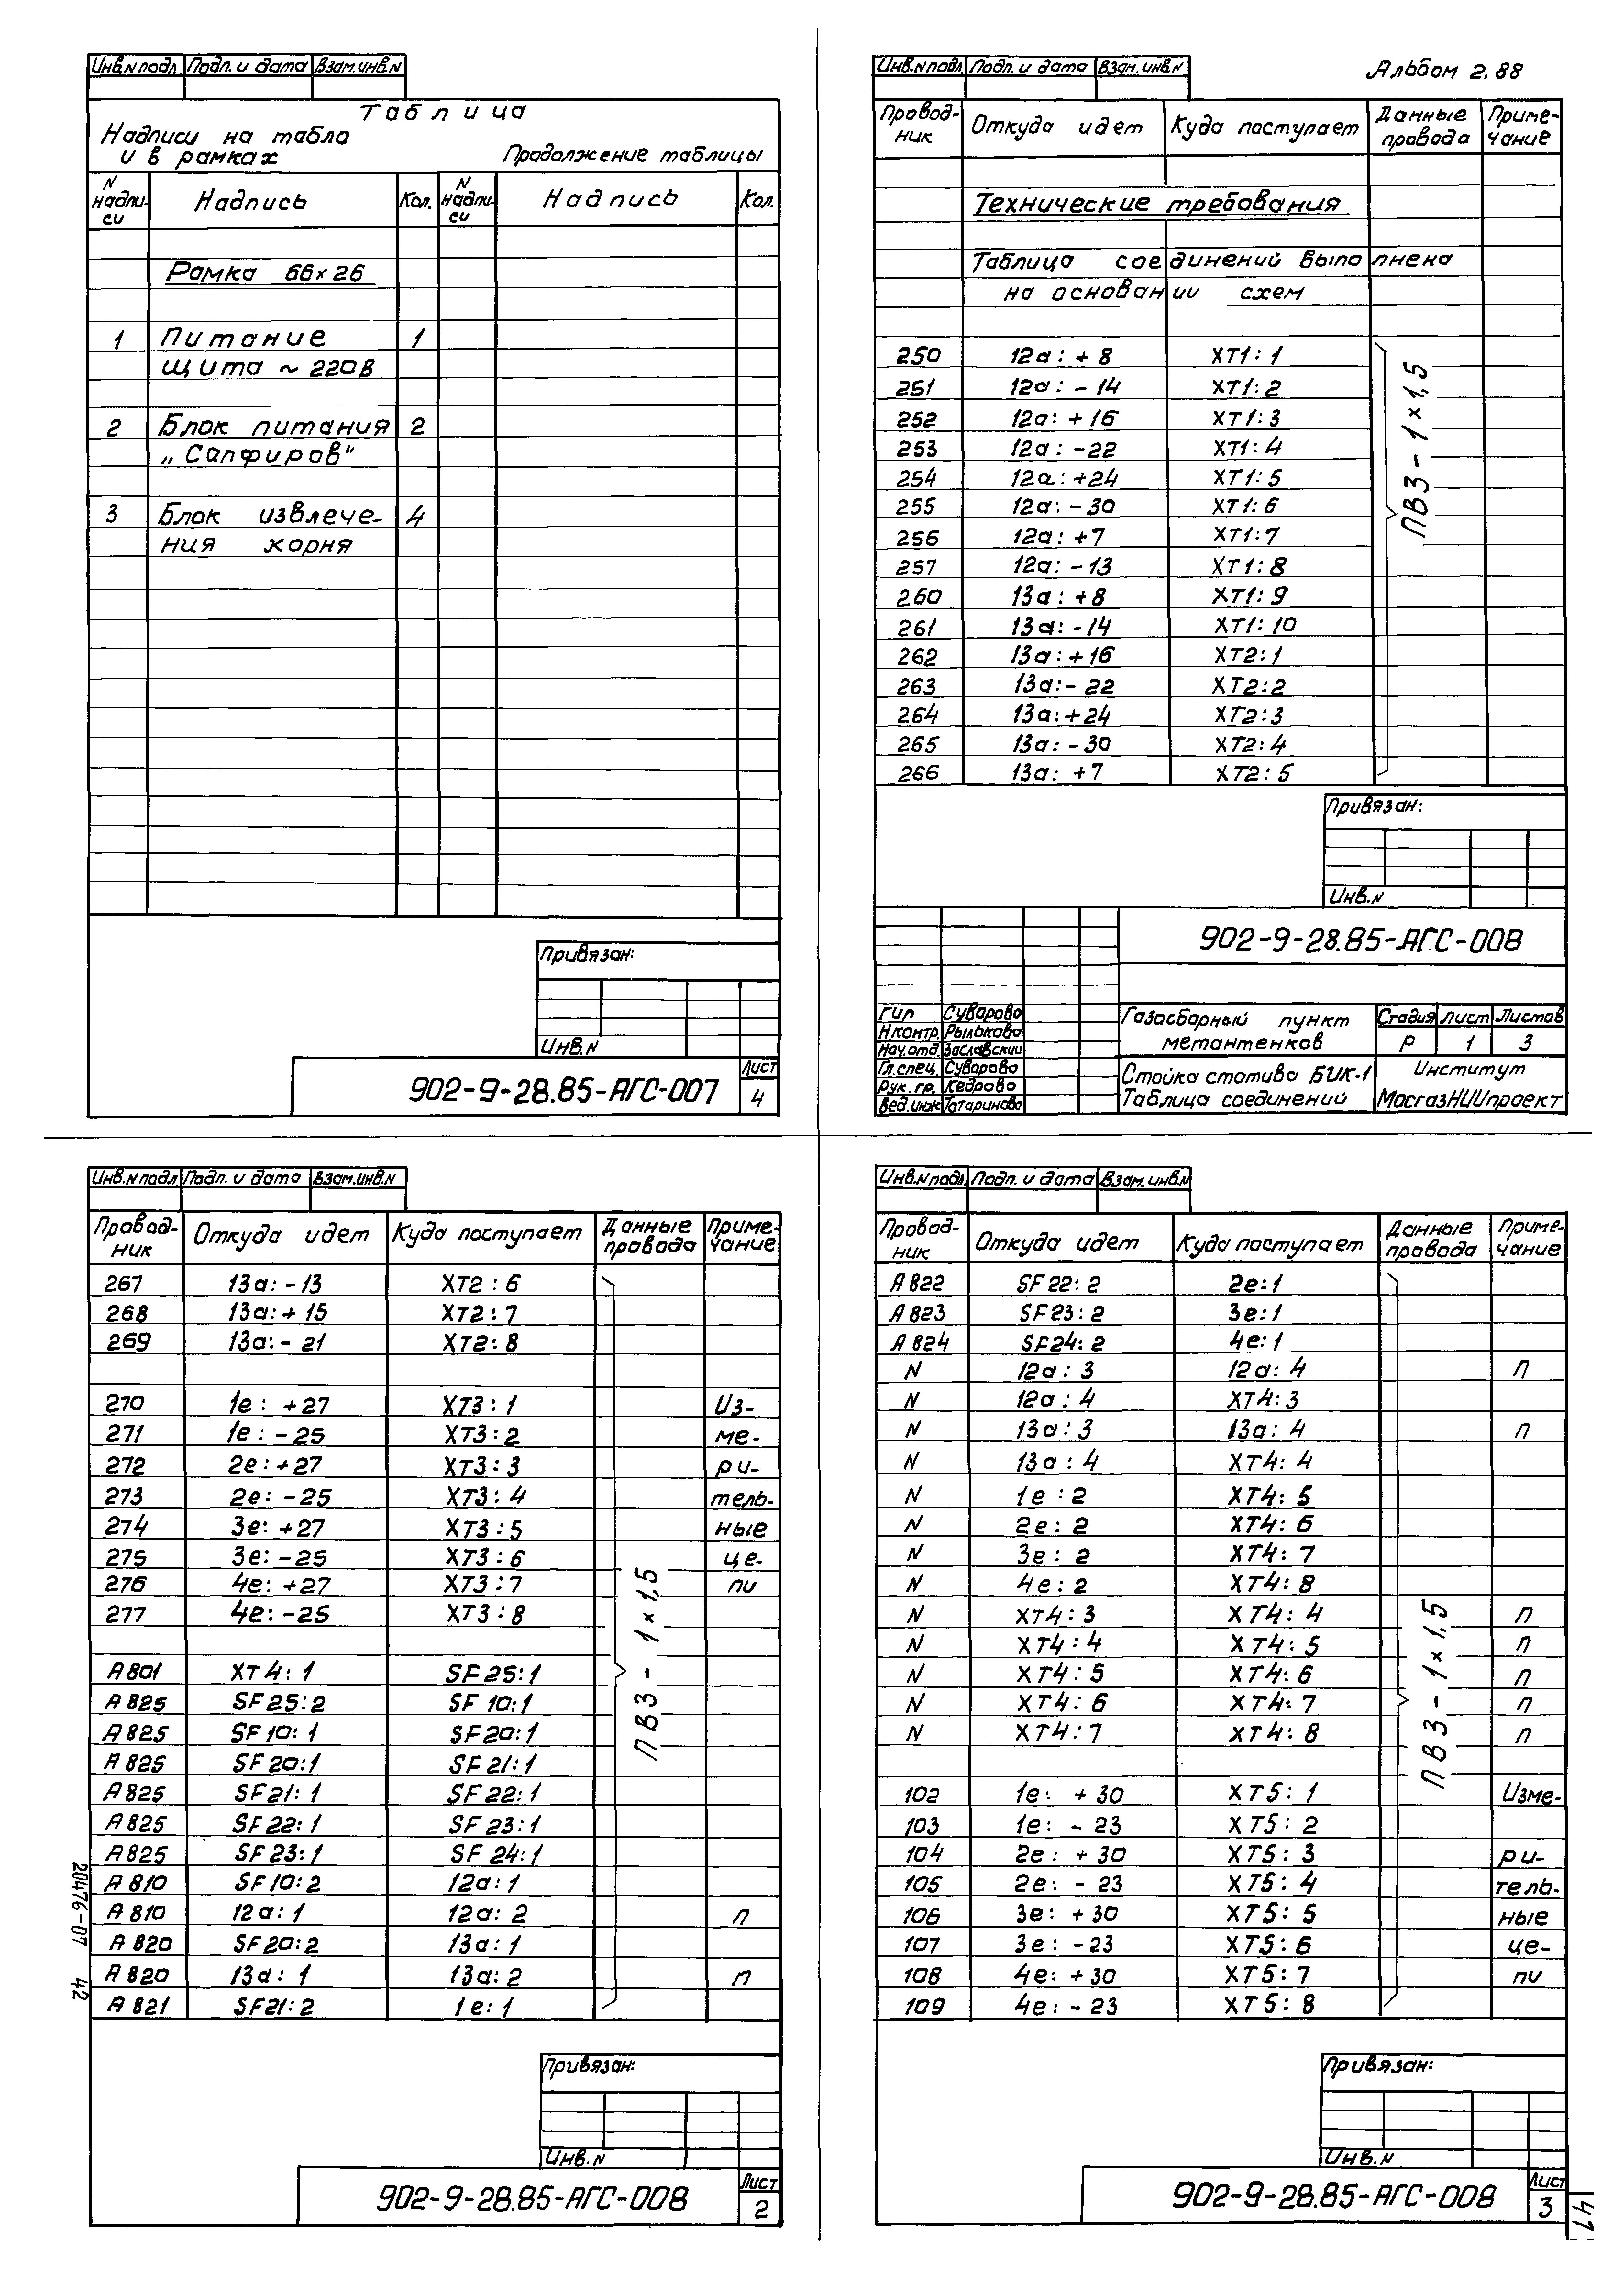 Инв.N подл. Подп. и дата Взам.инв.N
Таблица
Надписи на табло
и в рамках
Продолжение таблицы
N надпи-си Надпись Кол. N надпи-си Надпись Кол.
Рамка 66×26
1 Питание 1
щита ~ 220В
2 Блок питания 2
„Сапфиров"
3 Блок извлече- 4
ния корня
Привязан:
Инв.N
902-9-28.85-АГС-007
Лист
4
Инв.N подл. Подп. и дата Взам.инв.N
Альбом 2.88
Провод-ник Откуда идет Куда поступает Данные провода Приме-чание
Технические требования
Таблица соединений выполнена
на основании схем
250 12а: +8 XT1:1
251 12а: -14 XT1:2
252 12а: +16 XT1:3
253 12а: -22 XT1:4
254 12а: +24 XT1:5
255 12а: -30 XT1:6
256 12а: +7 XT1:7
257 12а: -13 XT1:8
260 13а: +8 XT1:9
261 13а: -14 XT1:10
262 13а: +16 XT2:1
263 13а: -22 XT2:2
264 13а: +24 XT2:3
265 13а: -30 XT2:4
266 13а: +7 XT2:5
ПВ3 - 1×1,5
Привязан:
Инв.N
902-9-28.85-АГС-008
Гип Суворова
Н.контр. Рылькова
Нач.отд. Заславский
Гл.спец. Суворова
Рук. гр. Кедрова
Вед.инж. Татаринова
Газосборный пункт
метантенков
Стадия Лист Листов
Р 1 3
Стойка статива БИК-1
Таблица соединений
Институт
МосгазНИИпроект
Инв.N подл. Подп. и дата Взам.инв.N
Провод-ник Откуда идет Куда поступает Данные провода Приме-чание
267 13а: -13 XT2:6
268 13а: +15 XT2:7
269 13а: -21 XT2:8
270 1е: +27 XT3:1 Из-
271 1е: -25 XT3:2 ме-
272 2е: +27 XT3:3 ри-
273 2е: -25 XT3:4 тель-
274 3е: +27 XT3:5 ные
275 3е: -25 XT3:6 це-
276 4е: +27 XT3:7 пи
277 4е: -25 XT3:8
А801 XT4:1 SF25:1
А825 SF25:2 SF10:1
А825 SF10:1 SF20:1
А825 SF20:1 SF21:1
А825 SF21:1 SF22:1
А825 SF22:1 SF23:1
А825 SF23:1 SF24:1
А810 SF10:2 12а:1
А810 12а:1 12а:2 п
А820 SF20:2 13а:1
А820 13а:1 13а:2 п
А821 SF21:2 1е:1
ПВ3 - 1×1,5
20476-07 42
Привязан:
Инв.N
902-9-28.85-АГС-008
Лист
2
Инв.N подл. Подп. и дата Взам.инв.N
Провод-ник Откуда идет Куда поступает Данные провода Приме-чание
А822 SF22:2 2е:1
А823 SF23:2 3е:1
А824 SF24:2 4е:1
N 12а:3 12а:4 п
N 12а:4 XT4:3
N 13а:3 13а:4 п
N 13а:4 XT4:4
N 1е:2 XT4:5
N 2е:2 XT4:6
N 3е:2 XT4:7
N 4е:2 XT4:8
N XT4:3 XT4:4 п
N XT4:4 XT4:5 п
N XT4:5 XT4:6 п
N XT4:6 XT4:7 п
N XT4:7 XT4:8 п
102 1е: +30 XT5:1 Изме-
103 1е: -23 XT5:2
104 2е: +30 XT5:3 ри-
105 2е: -23 XT5:4 тель-
106 3е: +30 XT5:5 ные
107 3е: -23 XT5:6 це-
108 4е: +30 XT5:7 пи
109 4е: -23 XT5:8
ПВ3 - 1×1,5
Привязан:
Инв.N
902-9-28.85-АГС-008
Лист
3
41